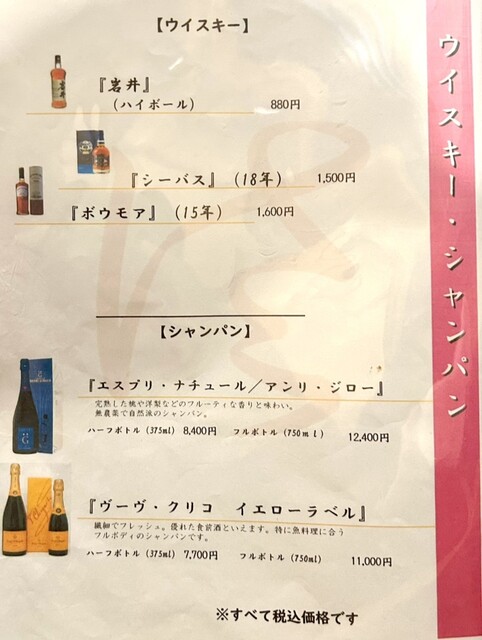 【ウイスキー】
『岩井』
(ハイボール) 880円
『シーバス』 (18年) 1,500円
『ボウモア』 (15年) 1,600円
【シャンパン】
『エスプリ・ナチュール／アンリ・ジロー』
完熟した桃や洋梨などのフルーティな香りと味わい。
無農薬で自然派のシャンパン。
ハーフボトル (375ml) 8,400円 フルボトル (750ml) 12,400円
『ヴーヴ・クリコ イエローラベル』
繊細でフレッシュ。優れた食前酒といえます。特に魚料理に合う
フルボディのシャンパンです。
ハーフボトル (375ml) 7,700円 フルボトル (750ml) 11,000円
※すべて税込価格です
ウイスキー・シャンパン